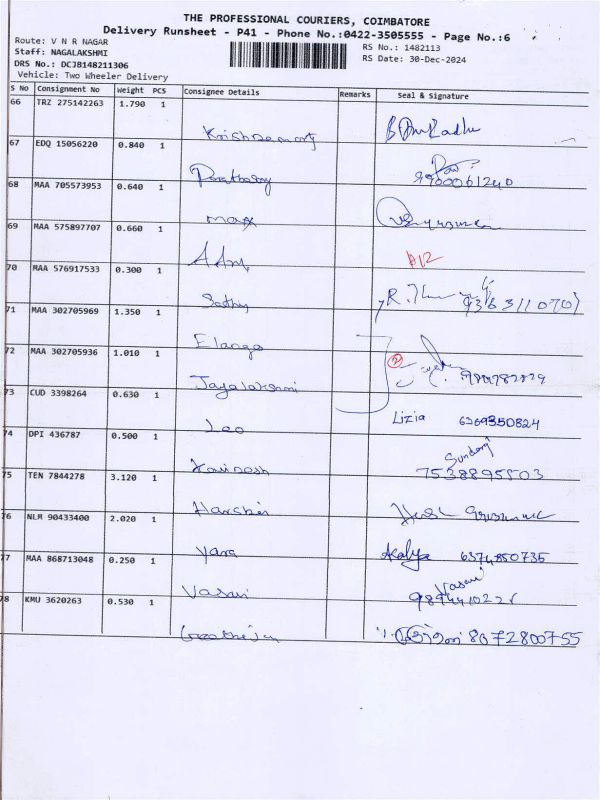 THE PROFESSIONAL COURIERS, COIMBATORE
Delivery Runsheet - P41 - Phone No.:0422-3505555 - Page No.:6
Route: V N R NAGAR
RS No.: 1482113
Staff: NAGALAKSHMI
RS Date: 30-Dec-2024
DRS No.: DCJB148211306
Vehicle: Two Wheeler Delivery
S No Consignment No Weight PCS Consignee Details Remarks Seal & Signature
66 TRZ 275142263 1.790 1
67 EDQ 15056220 0.840 1
9900061240
68 MAA 705573953 0.640 1
max
69 MAA 575897707 0.660 1
70 MAA 576917533 0.300 1
Sathy
71 MAA 302705969 1.350 1
Elango
72 MAA 302705936 1.010 1
2
Jayalaksmi
73 CUD 3398264 0.630 1
Leo Lizia 6269350824
74 DPI 436787 0.500 1
Kavinesh 7538895503
75 TEN 7844278 3.120 1
Harshini
76 NLM 90433400 2.020 1
Yara 6374850735
77 MAA 868713048 0.250 1
Vasari Vasari
78 KMU 3620263 0.530 1
8072800755